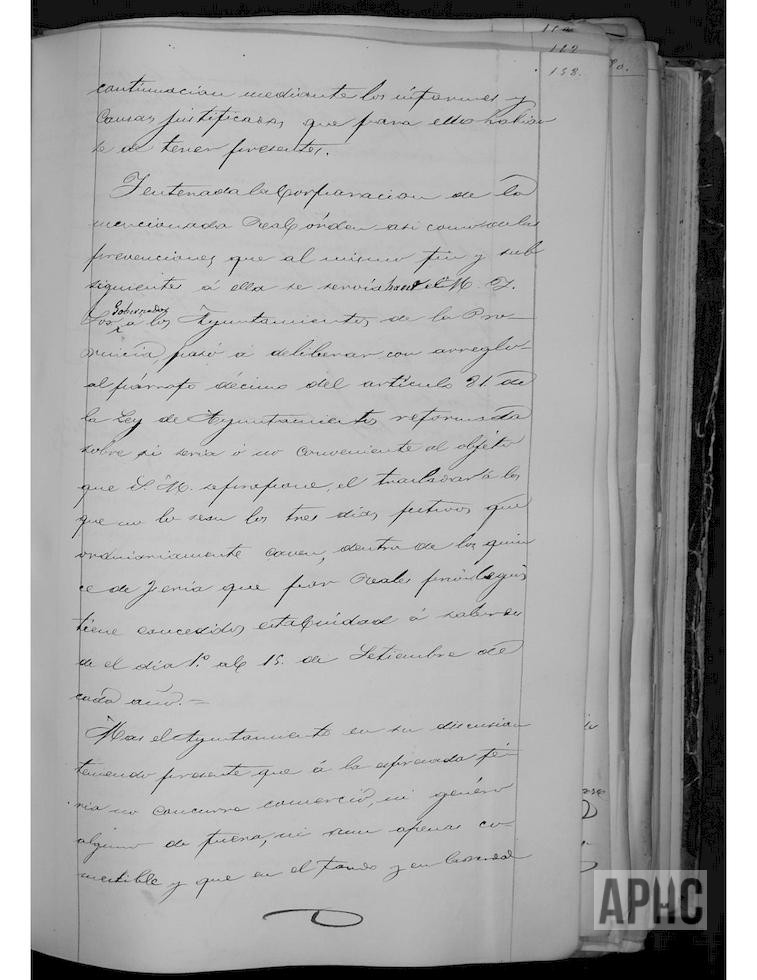 112
162
158.
continuacion mediante los informes y
Causas justificadas, que para ello habian
se de tener presentes.
Y enterada la Corporacion de la
mencionada Real órden asi como de las
prevenciones que al mismo fin y sub
siguientes á ella se servia hacer el M. I.
Sor Gobernador á los Ayuntamientos de la Pro-
vincia, pasó á deliberar con arreglo
al párrafo décimo del artículo 81 de
la Ley de Ayuntamientos reformada
sobre si seria ó no conveniente al objeto
que S. M. se propone, el trasladar á los
que no lo sean los tres dias festivos que
ordinariamente caen, dentro de los quin
ce de feria que por Reales privilegios
tiene concedidos esta Ciudad á saber des
de el dia 1.º al 15. de Setiembre de
cada año. =
Mas el Ayuntamiento en su discusion
teniendo presente que á la espresada fé
ria no concurre comercio, ni género
alguno de fuera, ni aun apenas co-
mestible y que en el fondo y en la verdad
APHC